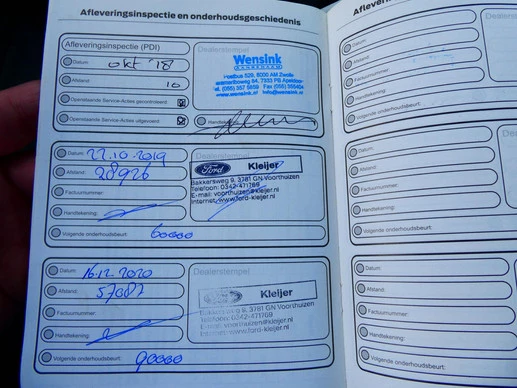 Afleveringsinspectie en onderhoudsgeschiedenis
Afleveringsinspectie (PDI)
Dealerstempel
Datum: okt '18
Afstand: 10
Openstaande Service-Acties gecontroleerd:
Openstaande Service-Acties uitgevoerd:
Wensink
www.wensink.nl
Datum: 22.10.2019
Afstand: 28926
Factuurnummer:
Handtekening:
Volgende onderhoudsbeurt: 60000
Ford Kleijer
Bakkersweg 9, 3781 GN Voorthuizen
Telefoon: 0342-471769
E-mail: voorthuizen@kleijer.nl
Internet: www.ford-kleijer.nl
Datum: 16.12.2020
Afstand: 57082
Factuurnummer:
Handtekening:
Volgende onderhoudsbeurt: 90000
Dealerstempel
Kleijer
Bakkersweg 9, 3781 GN Voorthuizen
Telefoon: 0342-471769
E-mail: voorthuizen@kleijer.nl
Datum:
Afstand:
Factuurnummer:
Handtekening:
Volgende onderhoudsbeurt:
Datum:
Afstand:
Factuurnummer:
Handtekening:
Volgende onderhoudsbeurt:
Datum:
Afstand:
Factuurnummer:
Handtekening:
Volgende onderhoudsbeurt: